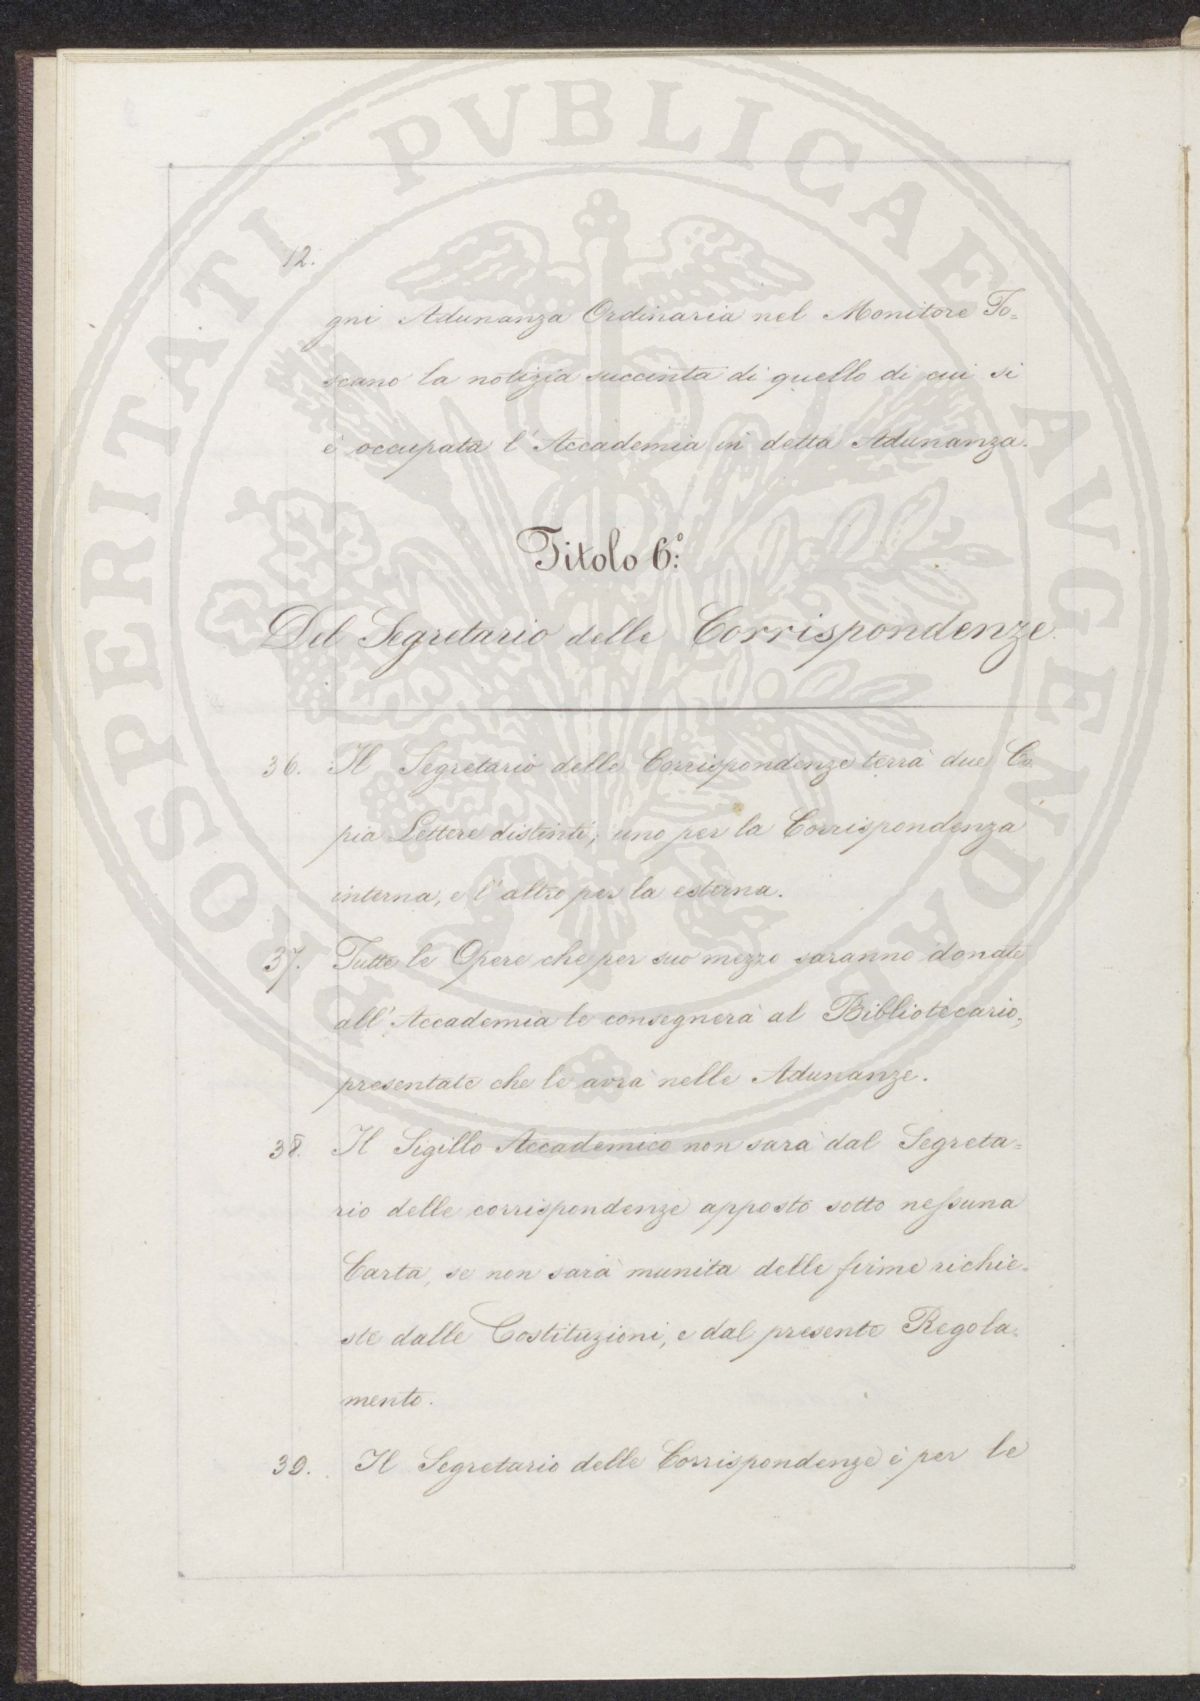 PROSPERITATI PVBLICAE AVGENDAE
12.
gni Adunanza Ordinaria nel Monitore To=
scano la notizia succinta di quello di cui si
è occupata l'Accademia in detta Adunanza.
Titolo 6.º
Del Segretario delle Corrispondenze.
36. Il Segretario delle Corrispondenze terrà due Co
pia Lettere distinti, uno per la Corrispondenza
interna, e l'altro per la esterna.
37. Tutte le Opere che per suo mezzo saranno donate
all'Accademia le consegnerà al Bibliotecario,
presentate che le avrà nelle Adunanze.
38. Il Sigillo Accademico non sarà dal Segreta=
rio delle corrispondenze apposto sotto neſsuna
Carta, se non sarà munita delle firme richie=
ste dalle Costituzioni, e dal presente Regola=
mento.
39. Il Segretario delle Corrispondenze è per le